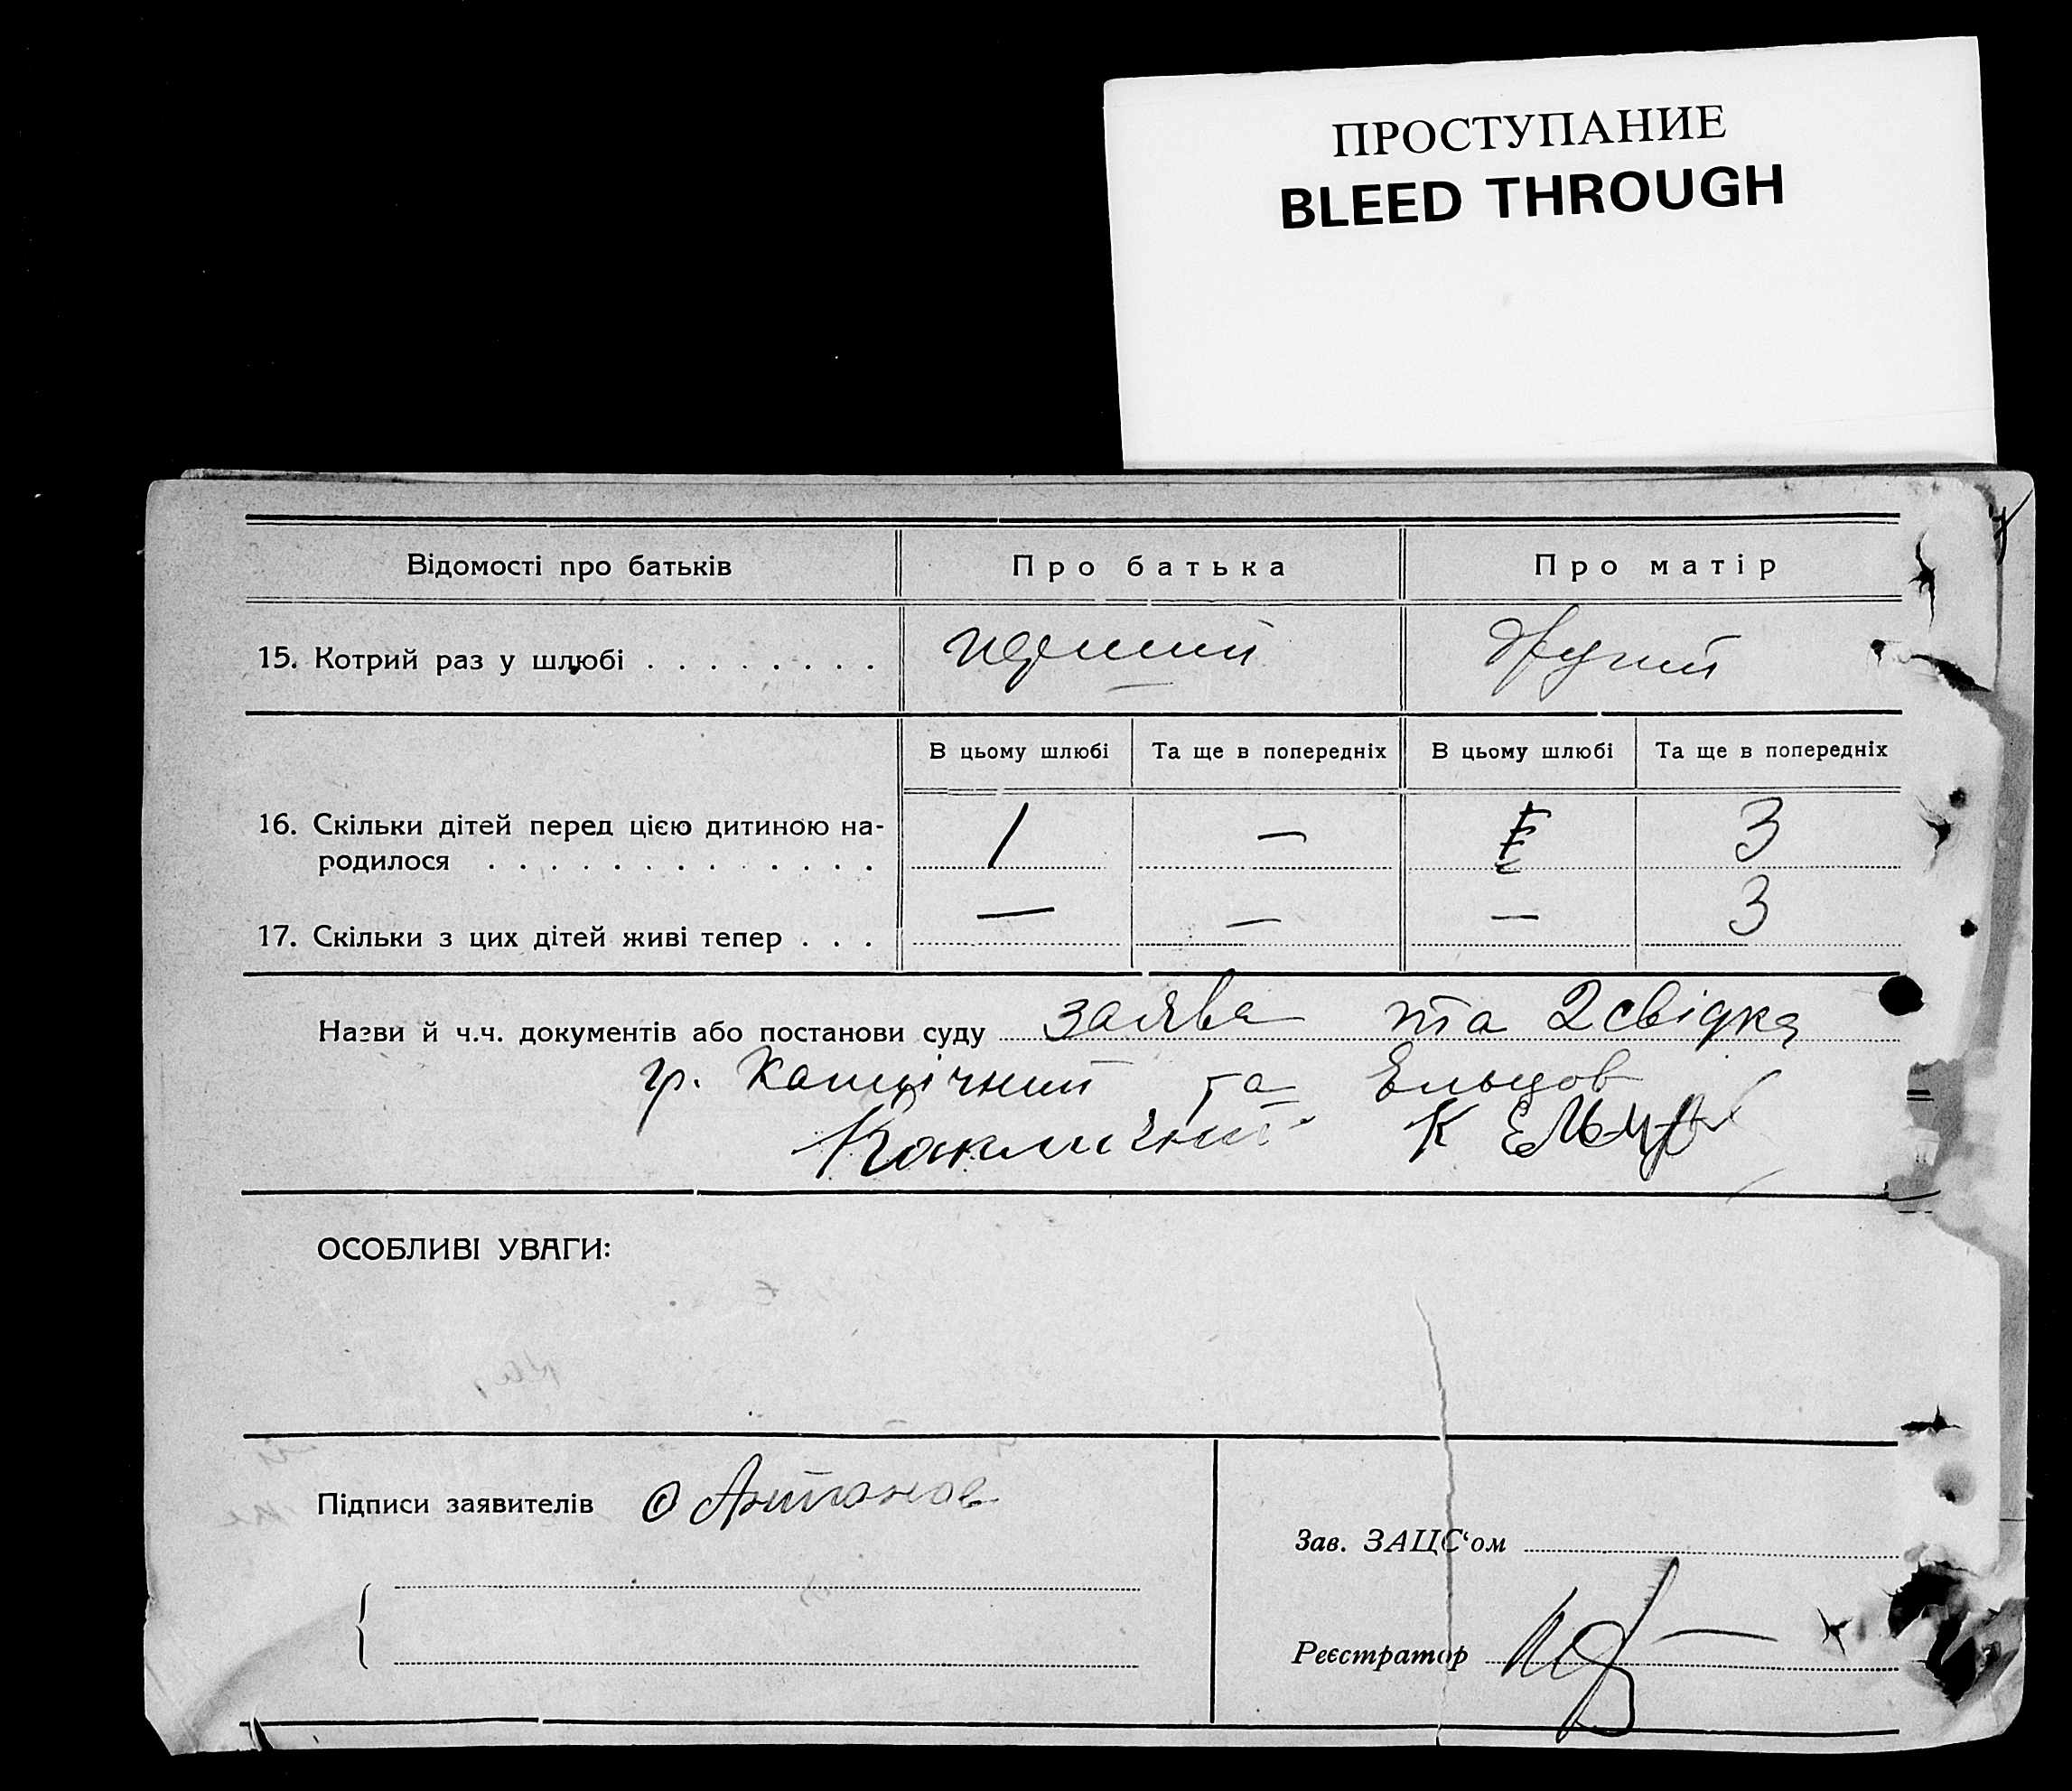 ПРОСТУПАНИЕ
BLEED THROUGH
Відомості про батьків Про батька Про матір
15. Котрий раз у шлюбі . . . . . . . . перший другий
В цьому шлюбі Та ще в попередніх В цьому шлюбі Та ще в попередніх
16. Скільки дітей перед цією дитиною на-
родилося . . . . . . . . . . . . . 1 — 3
17. Скільки з цих дітей живі тепер . . . — — — 3
Назви й ч.ч. документів або постанови суду заява та 2 свідка
гр. та Ельцов
К Ельцов
ОСОБЛИВІ УВАГИ:
Підписи заявителів Антонов
Зав. ЗАЦС'ом
Реєстратор